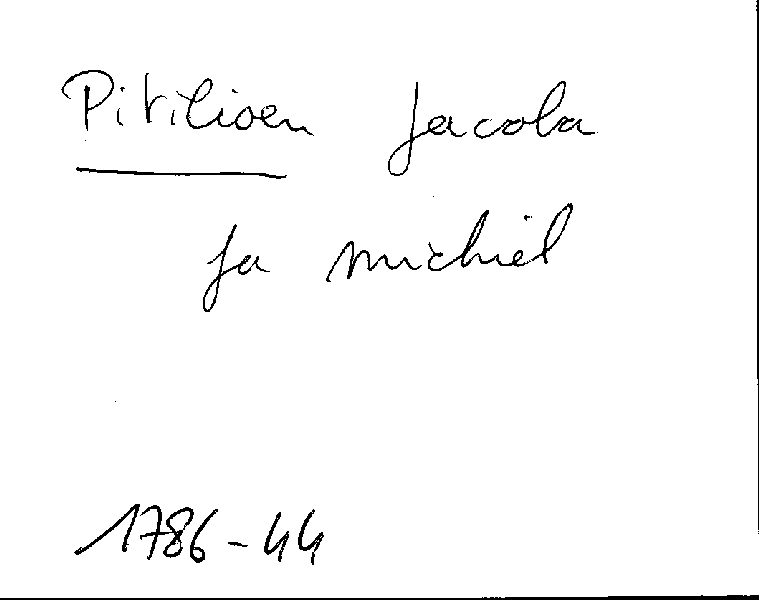 Pitilioen Jacoba
fa michiel
1786-44